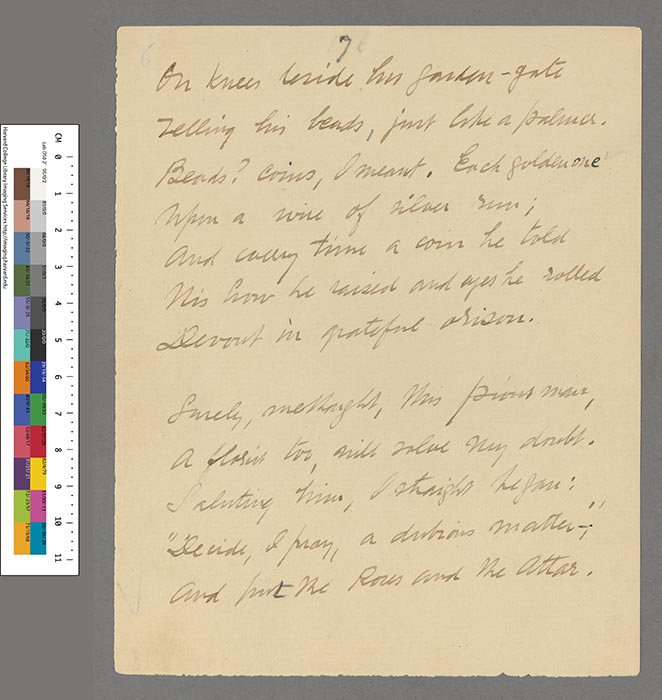 7
On knees beside his garden-gate
Telling his beads, just like a palmer.
Beads? Coins, I meant. Each golden one
Upon a wire of silver run;
And every time a coin he told
His brow he raised and eyes he rolled
Devout in grateful orison.
Surely, methought, this pious man,
A florist too, will solve my doubt.
Saluting him, I straight began:
"Decide, I pray, a dubious matter—,"
And put the Roses and the Attar.
CM 0 1 2 3 4 5 6 7 8 9 10 11
Harvard College Library Imaging Services http://imaging.harvard.edu